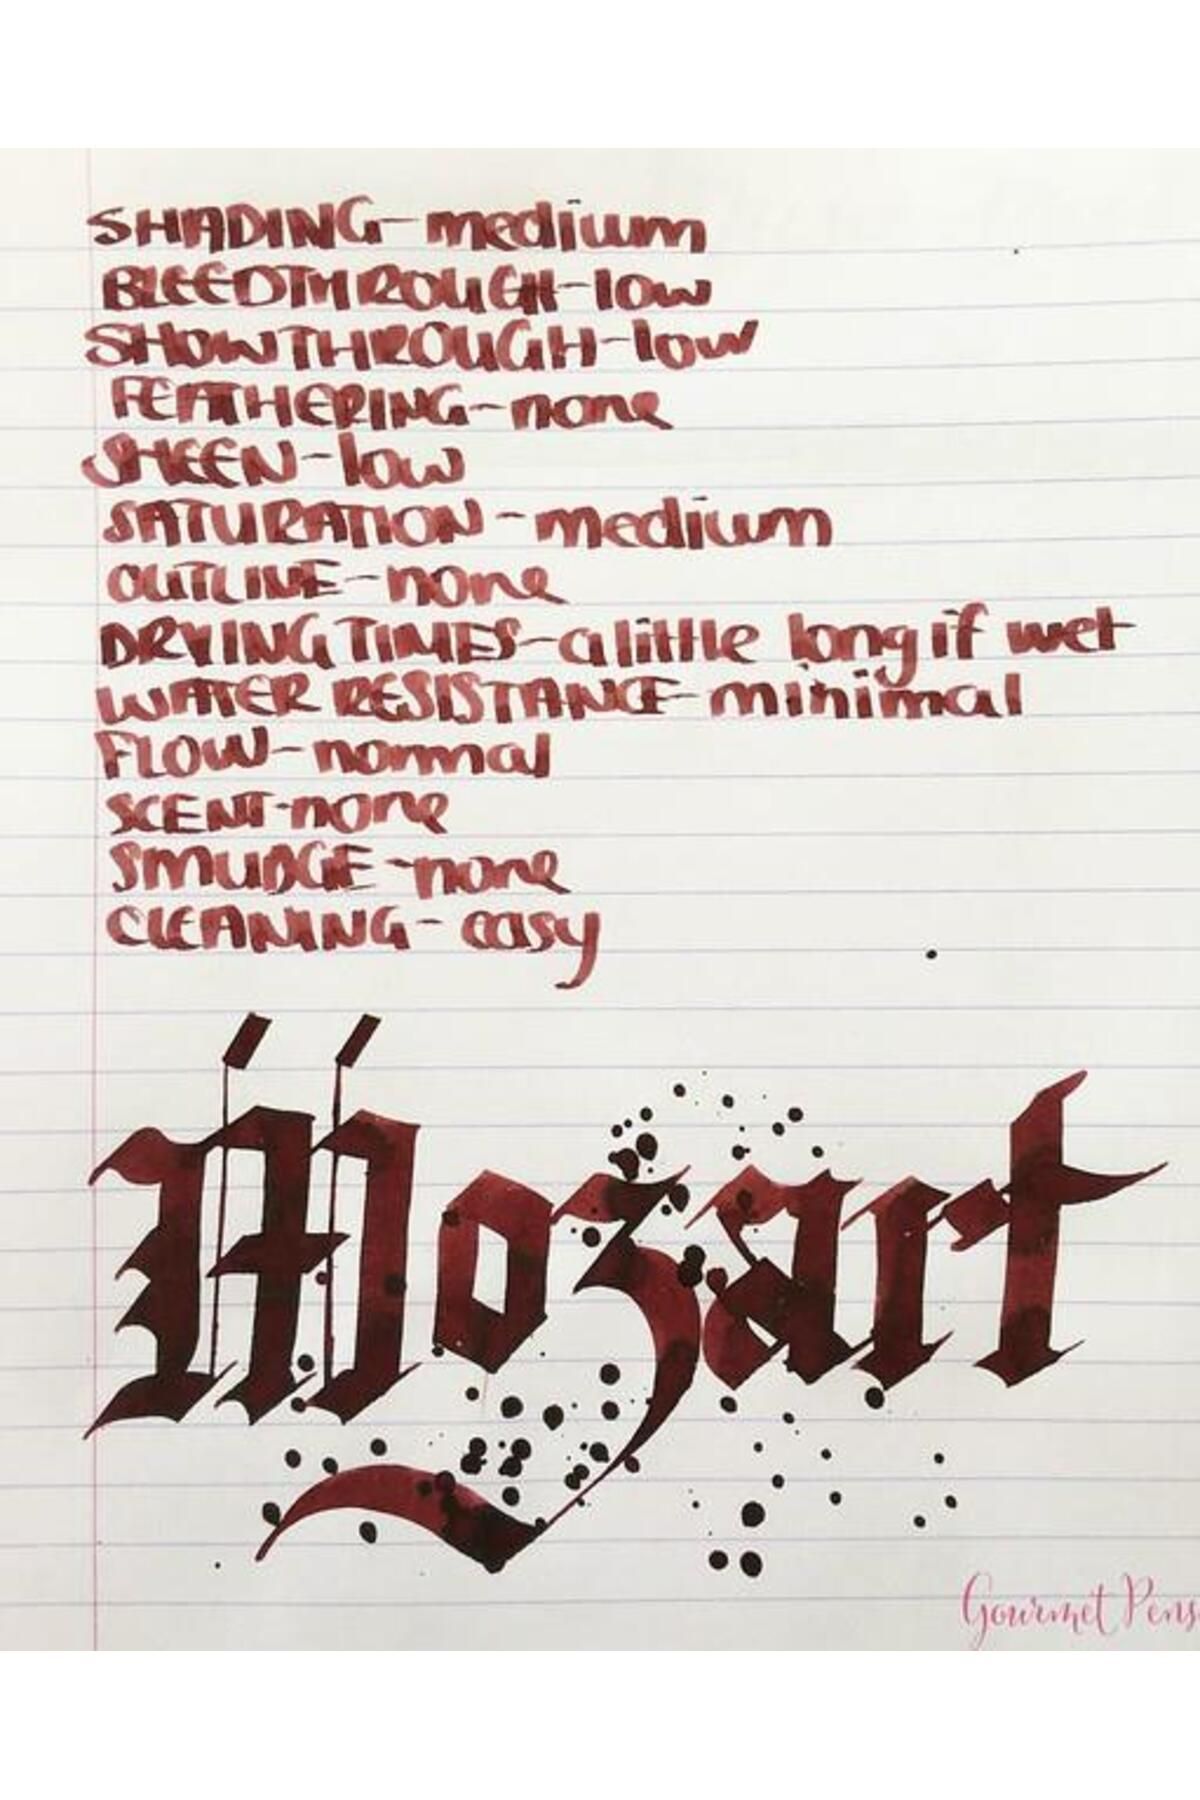 SHADING-medium
BLEEDTHROUGH-low
SHOWTHROUGH-low
FEATHERING-none
SHEEN-low
SATURATION-medium
OUTLINE-none
DRYING TIMES-a little long if wet
WATER RESISTANCE-minimal
FLOW-normal
SCENT-none
SMUDGE-none
CLEANING-easy
Mozart
Gourmet Pens